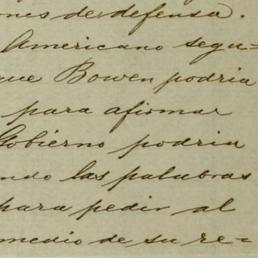 ones de defensa.
Americano segu=
que Bowen podria
para afirmar
Gobierno podria
ndo las palabras
para pedir al
medio de su re=